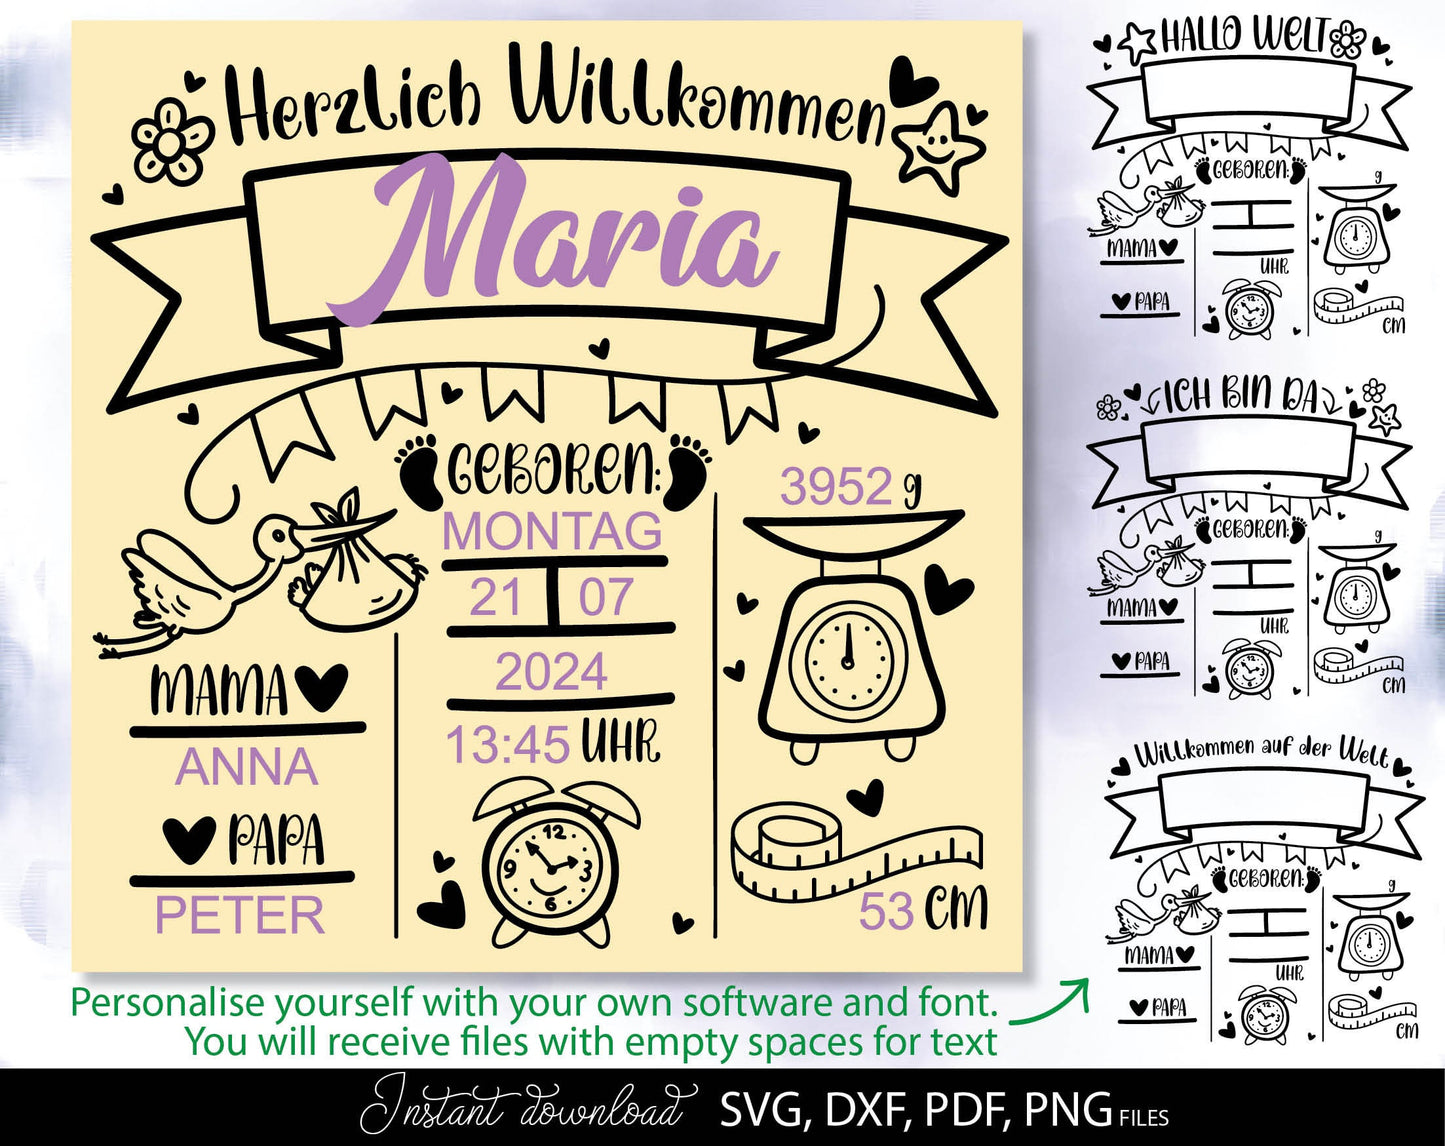 Herzlich Willkommen
Maria
GEBOREN:
MONTAG
21 07
2024
13:45 UHR
12
3
6
9
MAMA
ANNA
PAPA
PETER
3952 g
53 CM
HALLO WELT
GEBOREN:
g
MAMA
UHR
PAPA
12
CM
ICH BIN DA
GEBOREN:
g
MAMA
UHR
PAPA
12
CM
Willkommen auf der Welt
GEBOREN:
g
MAMA
UHR
PAPA
12
CM
Personalise yourself with your own software and font.
You will receive files with empty spaces for text
Instant download SVG, DXF, PDF, PNG FILES